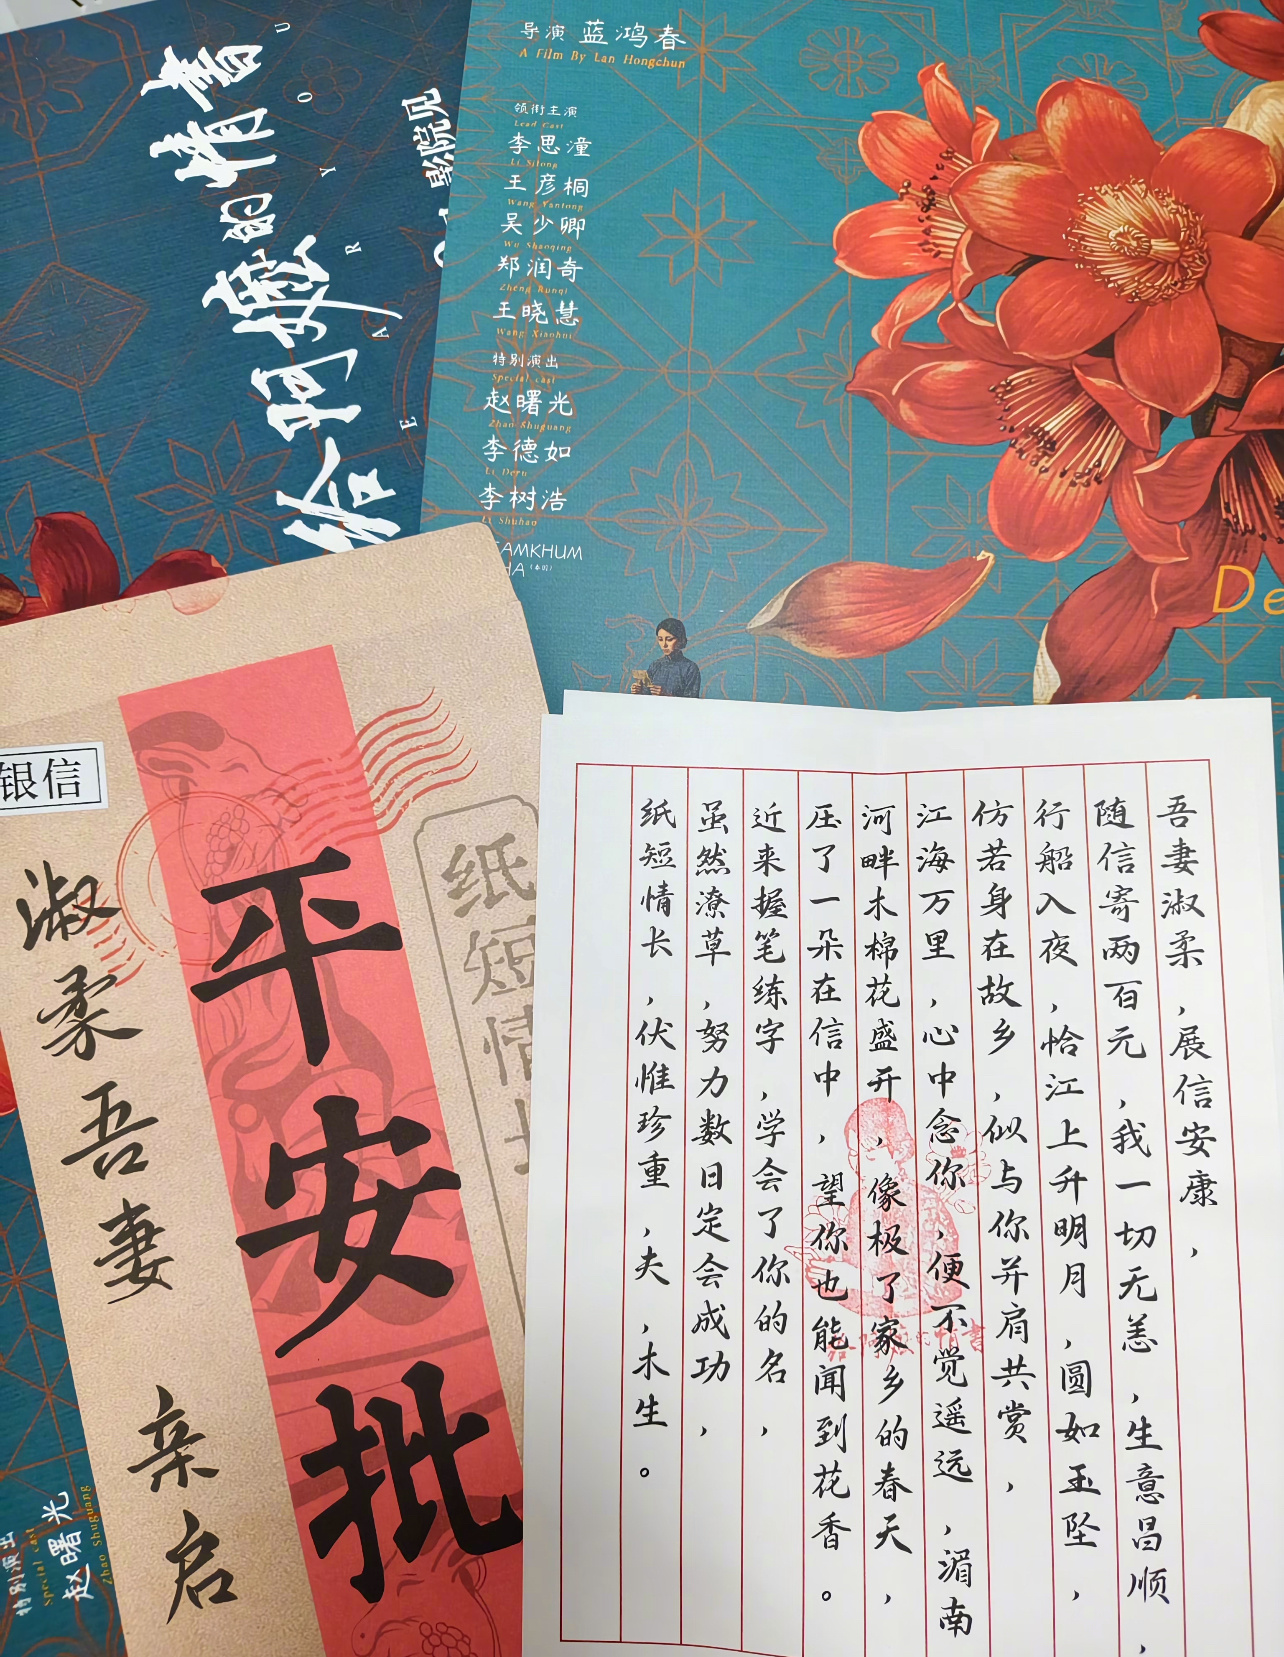 给阿嬷的情書
影院见
导演 蓝鸿春
A Film By Lan Hongchun
领衔主演
Lead Cast
李思潼
Li Sitong
王彦桐
Wang Yantong
吴少卿
Wu Shaoqing
郑润奇
Zheng Runqi
王晓慧
Wang Xiaohui
特别演出
Special Cast
赵曙光
Zhao Shuguang
李德如
Li Deru
李树浩
Li Shuhao
AMKHUM
HA
De
银信
平安批
淑柔吾妻 亲启
纸短情
吾妻淑柔,展信安康,
随信寄两百元,我一切无恙,生意昌顺,
行船入夜,恰江上升明月,圆如玉坠,
仿若身在故乡,似与你并肩共赏,
江海万里,心中念你,便不觉遥远,湄南
河畔木棉花盛开,像极了家乡的春天,
压了一朵在信中,望你也能闻到花香。
近来握笔练字,学会了你的名,
虽然潦草,努力数日定会成功,
纸短情长,伏惟珍重,夫,木生。
给阿嬷的情書
特别演出
Special Cast
赵曙光
Zhao Shuguang